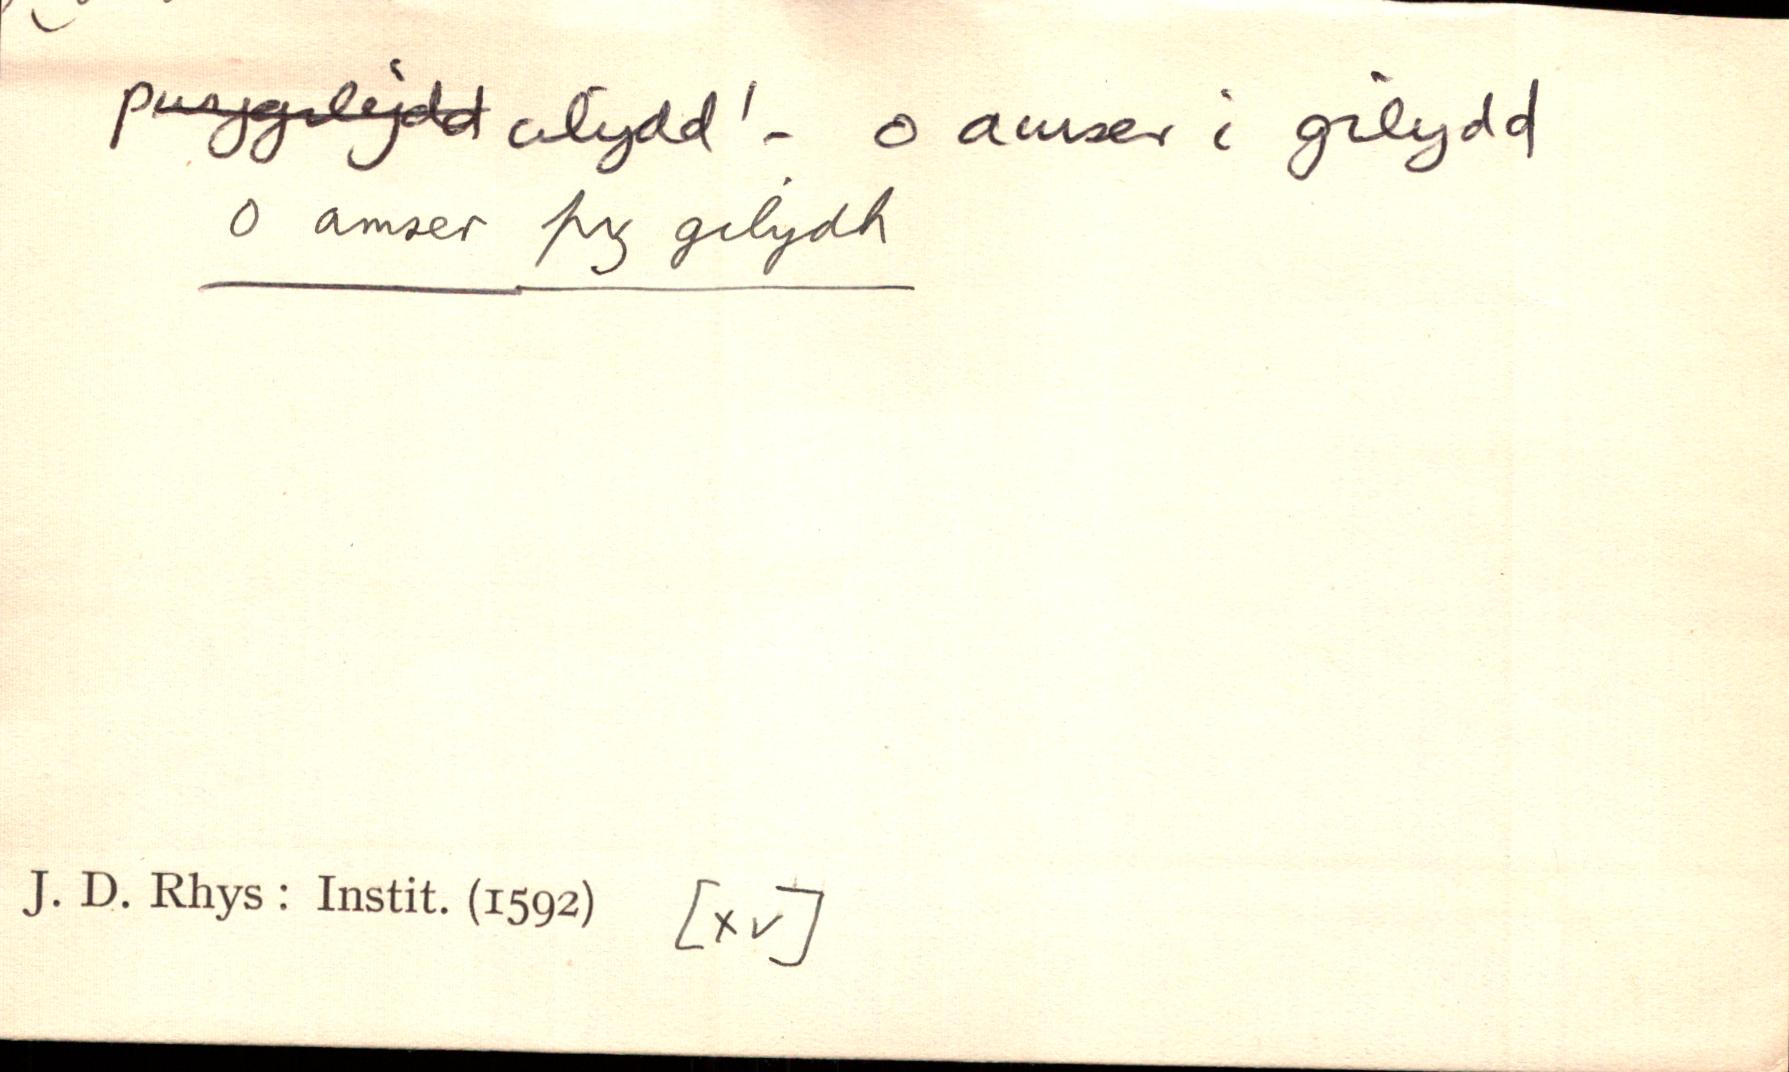 cilydd¹ - o amser i gilydd
o amser pvy gilydh
J. D. Rhys : Instit. (1592) [xv]